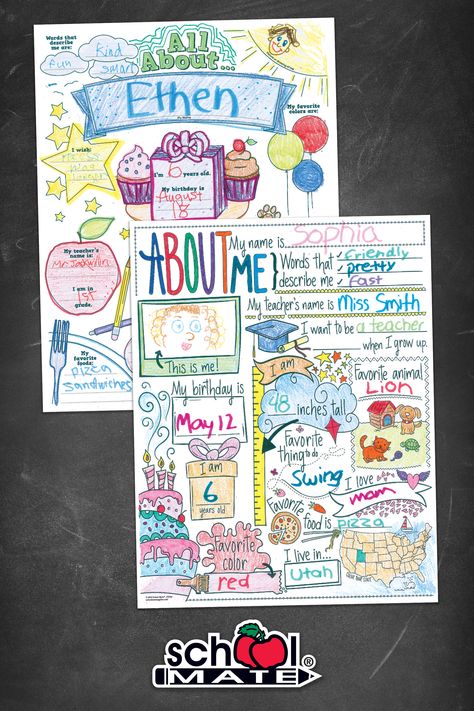 Words that
describe
me are:
fun
kind
smart
All
About...
Ethen
My favorite
colors are:
I wish:
I'm 6 years old.
My birthday is
August
18
My teacher's
name is:
I am in
1st
grade.
My favorite
foods:
pizza
sandwiches
ABOUT ME
My name is... Sophia
Words that
describe me
friendly
pretty
fast
My teacher's name is Miss Smith
I want to be a teacher
when I grow up.
This is me!
I am
48 inches tall
Favorite animal
Lion
My birthday is
May 12
Favorite
thing to do
Swing
I am
6
years old
I love
mom
Favorite
food is pizza
Favorite
color
red
I live in...
Utah
school
MATE®